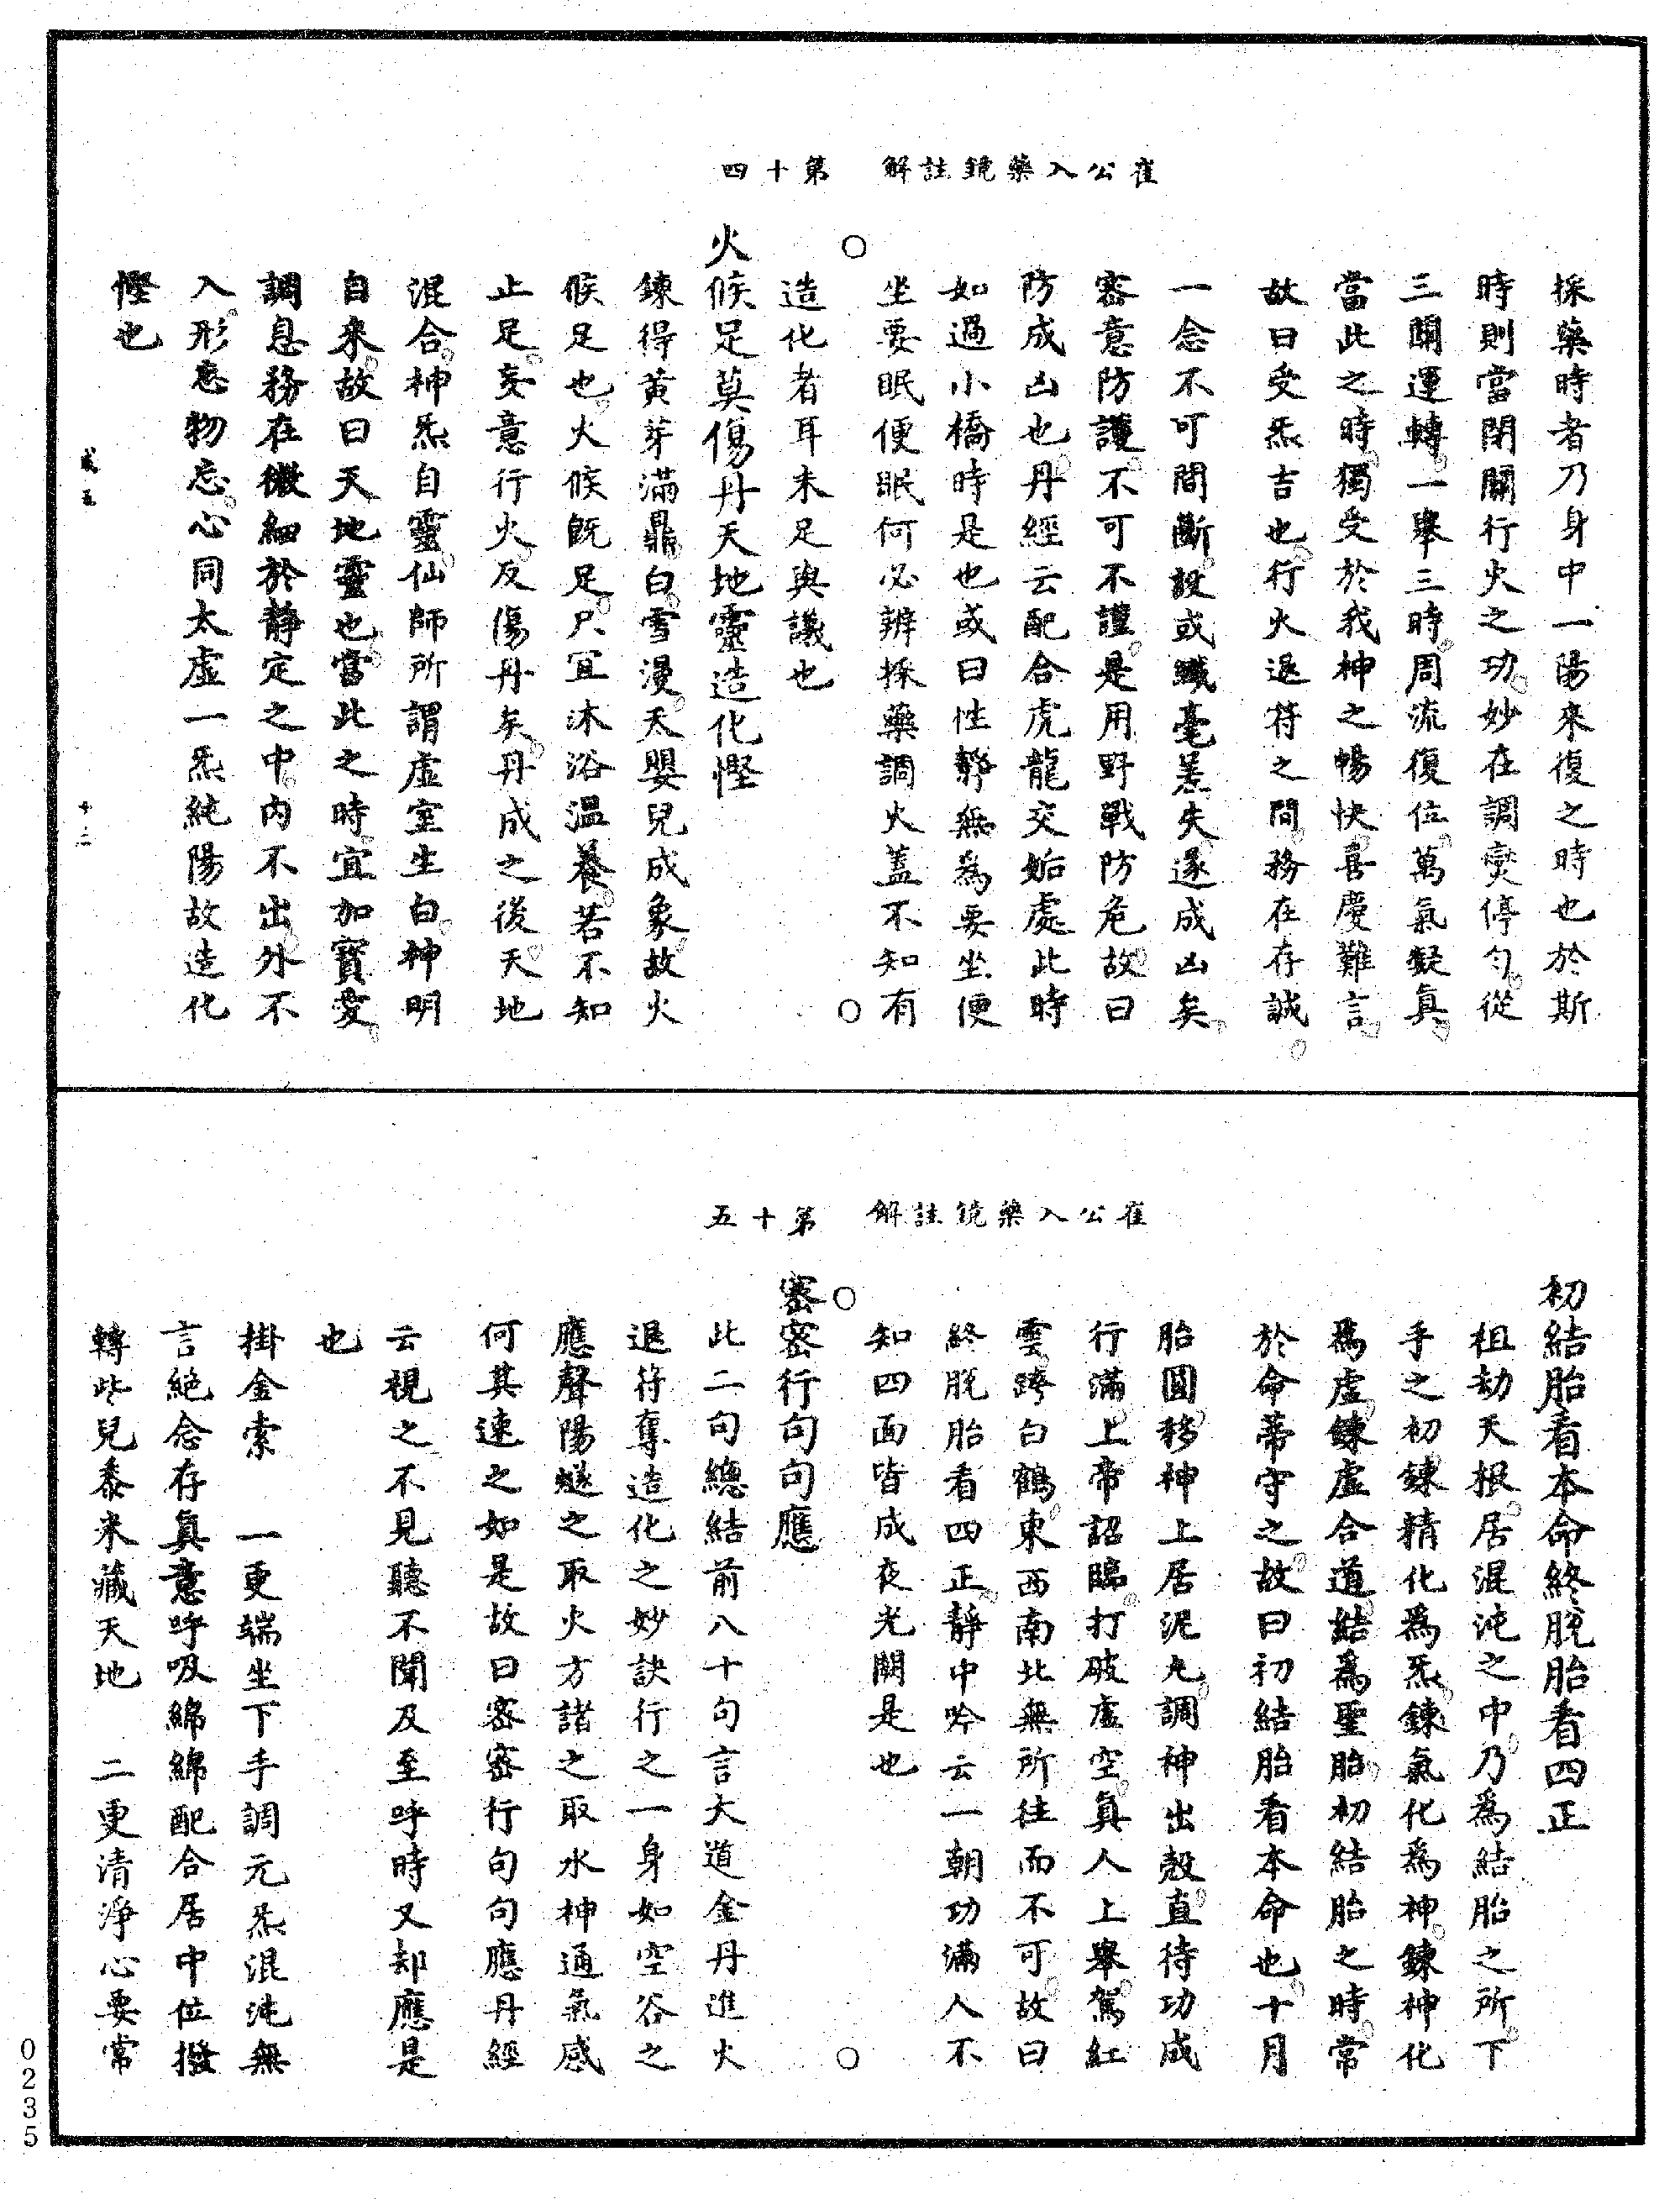 崔公入藥鏡註解　第十四
採藥時者乃身中一陽來復之時也於斯
時則當閉關行火之功妙在調爕停勻從
三關運轉一舉三時周流復位萬氣凝真
當此之時獨受於我神之暢快喜慶難言
故曰受炁吉也行火退符之間務在存誠
一念不可間斷設或纖毫差失遂成凶矣
密意防護不可不謹是用野戰防危故曰
防成凶也丹經云配合虎龍交姤處此時
如過小橋時是也或曰性靜無為要坐便
坐要眠便眠何必辨採藥調火蓋不知有
造化者耳未足與議也
火候足莫傷丹天地靈造化慳
鍊得黃芽滿鼎白雪漫天嬰兒成象故火
候足也火候既足只宜沐浴溫養若不知
止足妄意行火反傷丹矣丹成之後天地
混合神炁自靈仙師所謂虛室生白神明
自來故曰天地靈也當此之時宜加寶愛
調息務在微細於靜定之中內不出外不
入形忘物忘心同太虛一炁純陽故造化
慳也
貳五
十三
崔公入藥鏡註解　第十五
初結胎看本命終脫胎看四正
祖劫天根居混沌之中乃爲結胎之所下
手之初鍊精化爲炁鍊氣化爲神鍊神化
爲虛鍊虛合道結爲聖胎初結胎之時常
於命蒂守之故曰初結胎看本命也十月
胎圓移神上居泥丸調神出殼直待功成
行滿上帝詔臨打破虛空真人上舉駕紅
雲跨白鶴東西南北無所往而不可故曰
終脫胎看四正靜中吟云一朝功滿人不
知四面皆成夜光闕是也
密密行句句應
此二句總結前八十句言大道金丹進火
退符奪造化之妙訣行之一身如空谷之
應聲陽燧之取火方諸之取水神通氣感
何其速之如是故曰密密行句句應丹經
云視之不見聽不聞及至呼時又却應是
也
掛金索　一更端坐下手調元炁混沌無
言絕念存真意呼吸綿綿配合居中位撥
轉些兒黍米藏天地　二更清淨心要常
0235